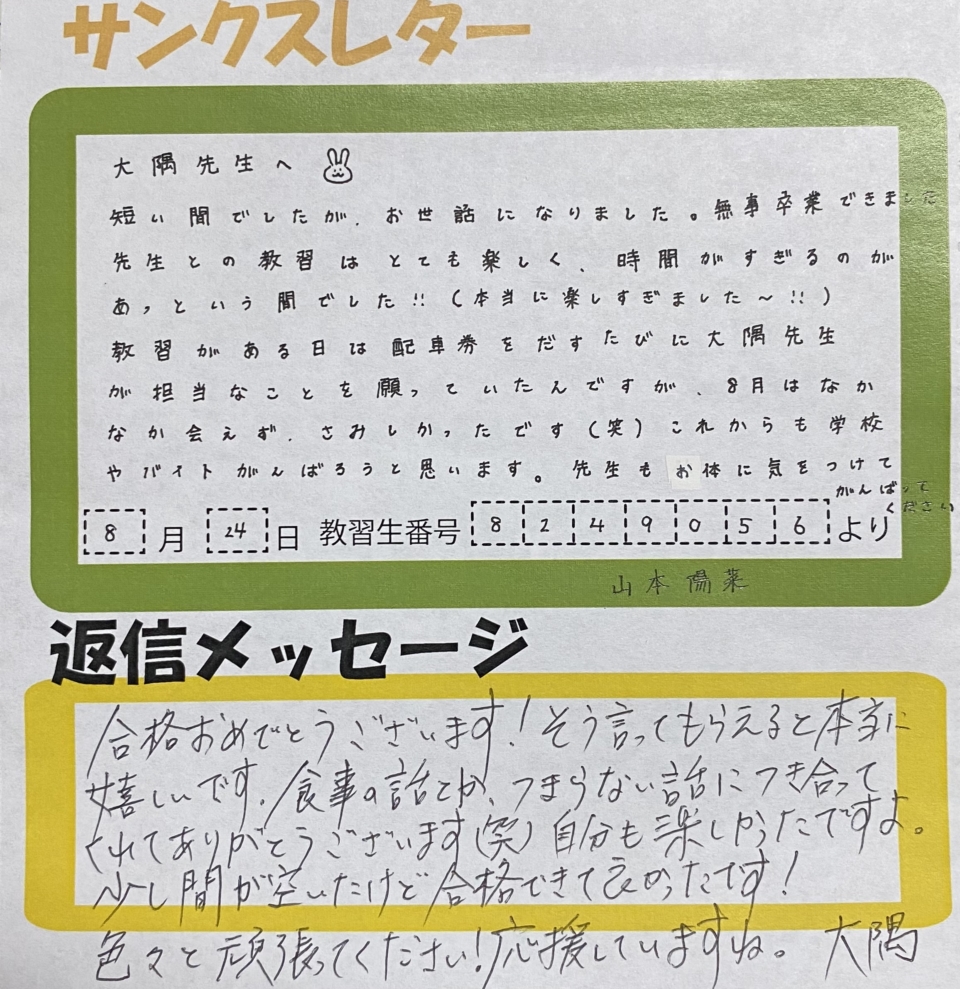 サンクスレター
大隅先生へ
短い間でしたが、お世話になりました。無事卒業できました
先生との教習はとても楽しく、時間がすぎるのが
あっという間でした!!(本当に楽しすぎました〜!!)
教習がある日は配車券をだすたびに大隅先生
が担当なことを願っていたんですが、8月はなか
なか会えず、さみしかったです(笑)これからも学校
やバイトがんばろうと思います。先生もお体に気をつけて
がんばって
ください
8月24日 教習生番号 8249056より
山本陽菜
返信メッセージ
合格おめでとうございます!そう言ってもらえると本当に
嬉しいです。食事の話とか、つまらない話につき合って
くれてありがとうございます(笑)自分も楽しかったですよ。
少し間が空いたけど合格できて良かったです!
色々と頑張ってください!応援していますね。 大隅